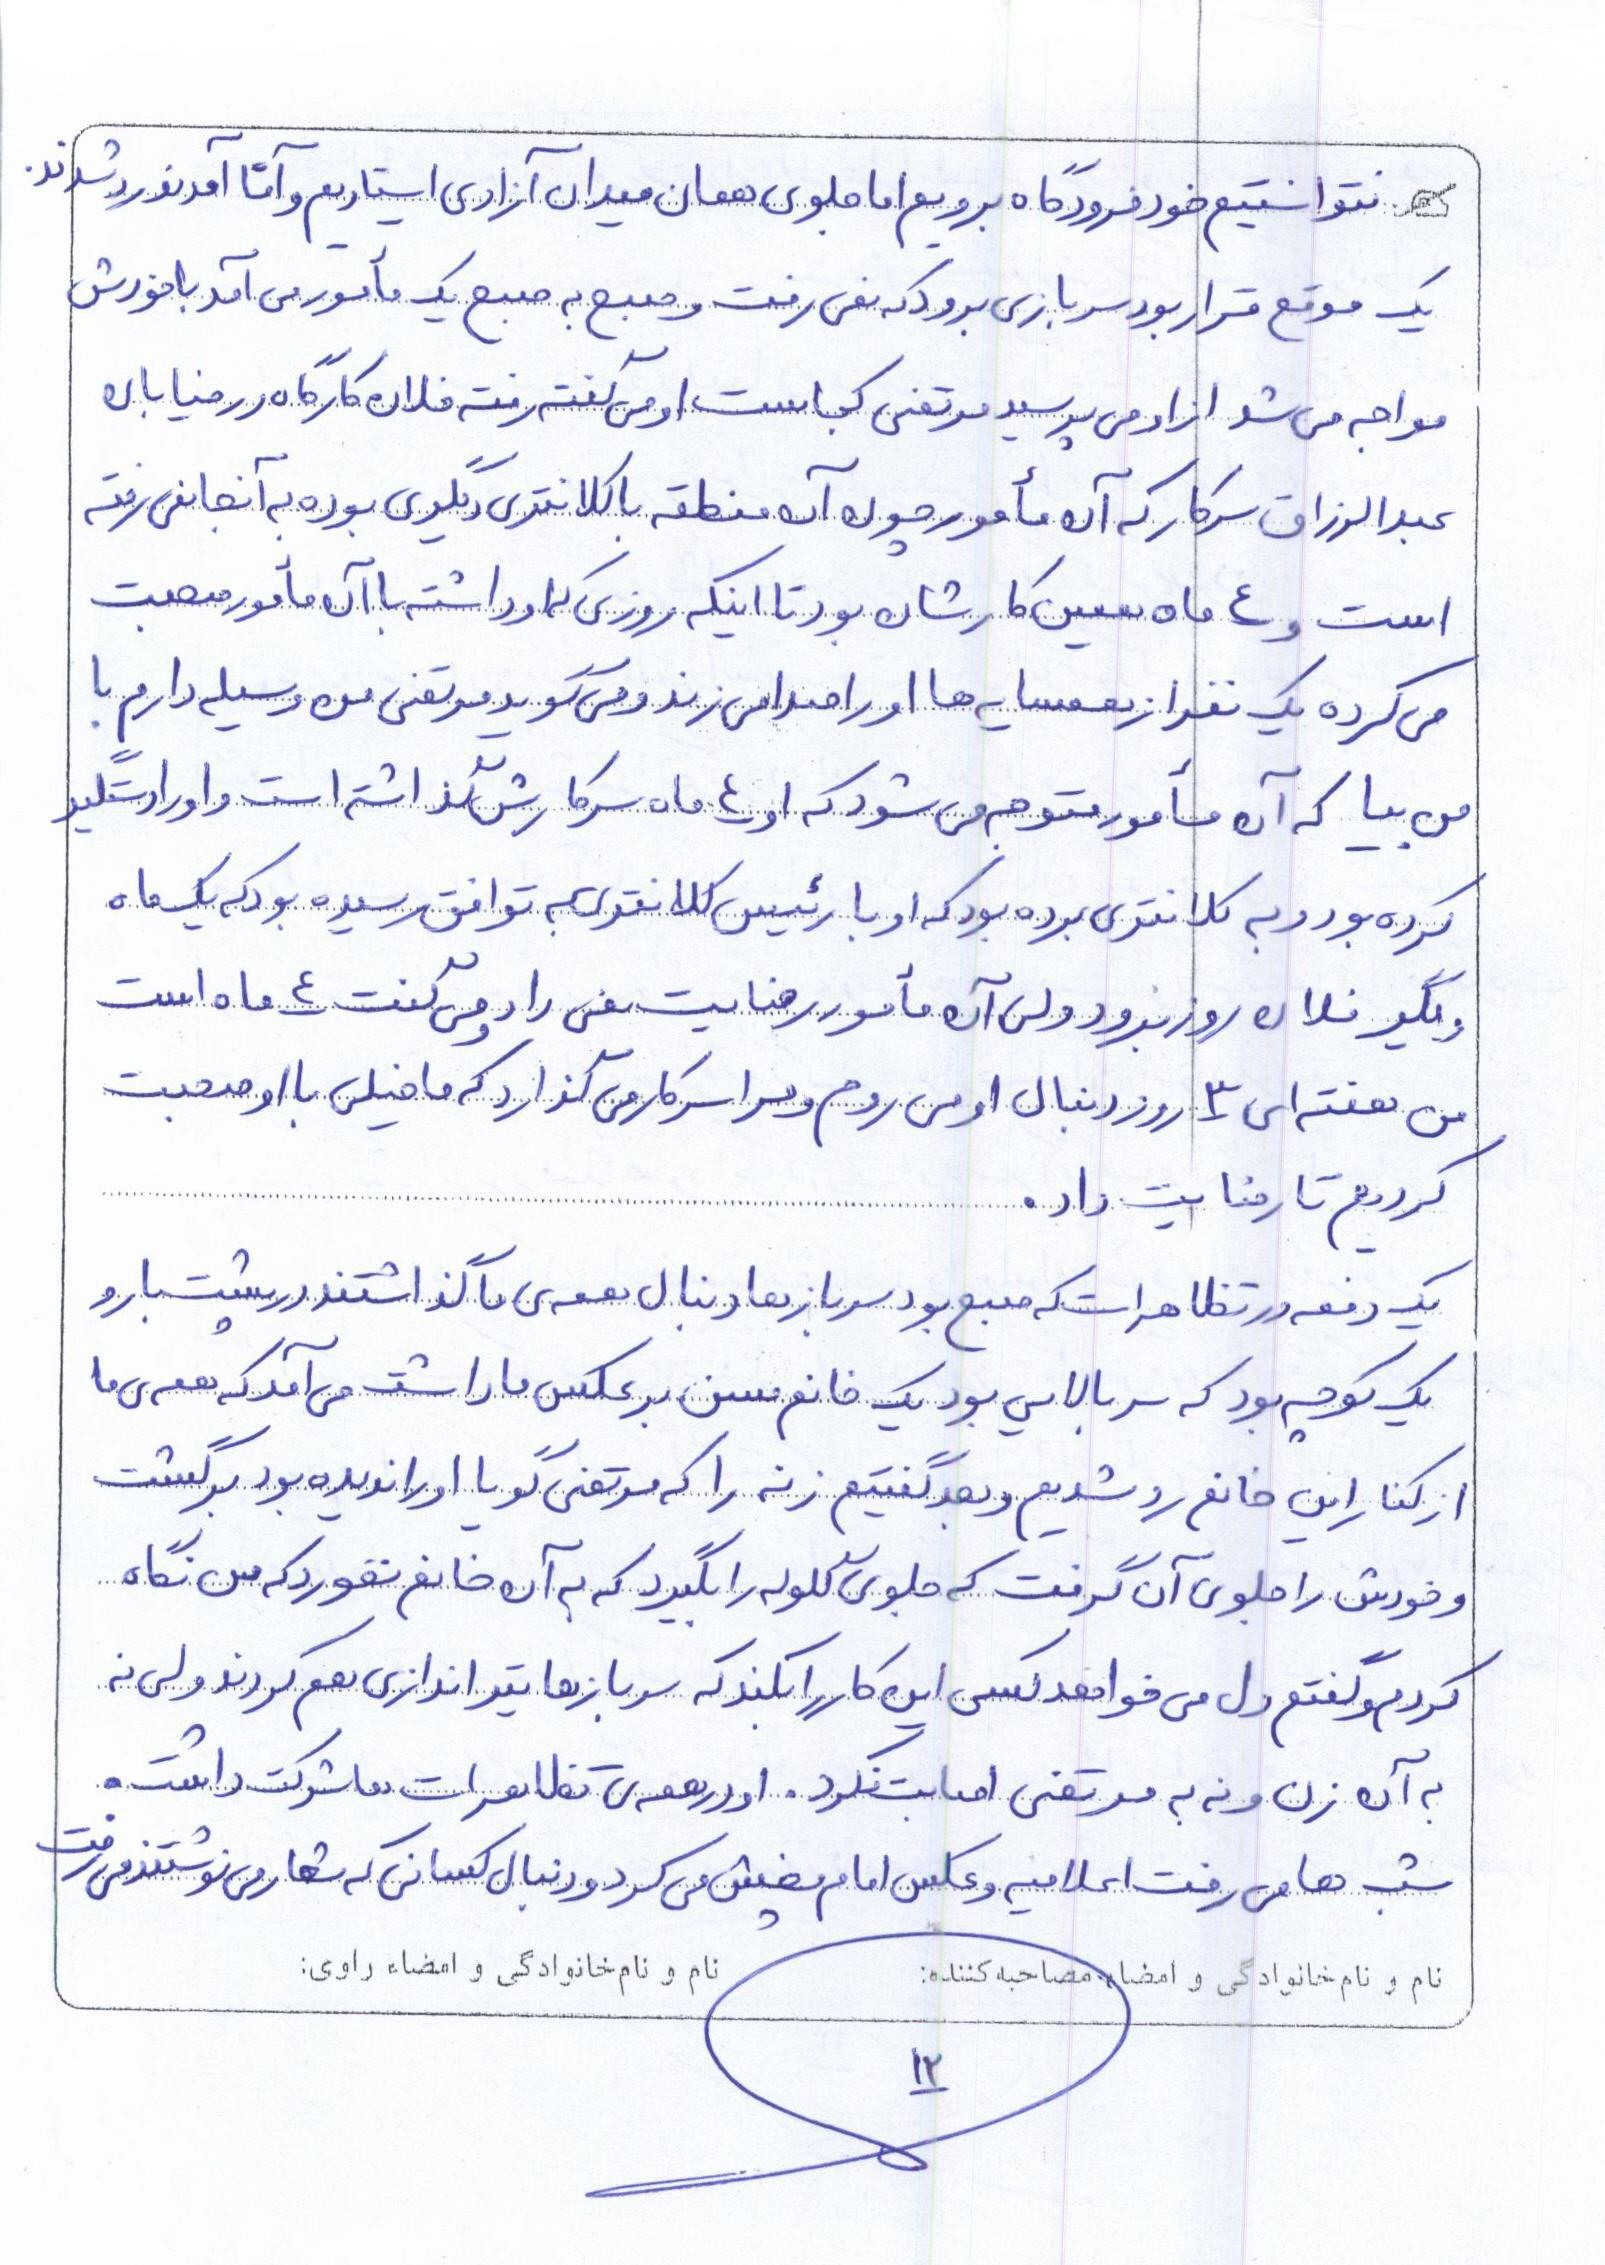 نتوانستیم خود فرودگاه برویم اما جلوی همان میدان آزادی ایستادیم و آقا آمدند رد شدند.
یک موقع قرار بود سربازی برود که نمی رفت و صبح به صبح یک مأمور می آمد با خودش
مواجه می شد از او می پرسید مرتضی کجاست او می گفته رفته فلان کارگاه در خیابان
عبدالرزاق سرکار که آن مأمور چون آن منطقه با کلانتری دیگری بوده به آنجا نمی رفته
است و ٤ ماه همین کارشان بود تا اینکه روزی که او داشته با آن مأمور صحبت
می کرده یک نفر از همسایه ها او را صدا می زند و می گوید مرتضی من وسیله دارم با
من بیا که آن مأمور متوجه می شود که او ٤ ماه سرکارش گذاشته است و او را دستگیر
کرده بود و به کلانتری برده بود که او با رئیس کلانتری به توافق رسیده بود که یک ماه
دیگر فلان روز برود ولی آن مأمور رضایت نمی داد و می گفت ٤ ماه است
من هفته ای ۳ روز دنبال او می روم و مرا سرکار می گذارد که ما خیلی با او صحبت
کردیم تا رضایت داد.
یک دفعه در تظاهرات که صبح بود سربازها دنبال همه ی ما گذاشتند در پشت بارو
یک کوچه بود که سربالایی بود یک خانم مسن برعکس ما داشت می آمد که همه ی ما
از کنار این خانم رد شدیم و بعد گفتیم زنه را که مرتضی گویا او را ندیده بود برگشت
و خودش را جلوی آن گرفت که جلوی گلوله را بگیرد که به آن خانم نخورد که من نگاه
کردم و گفتم دل می خواهد کسی این کار را بکند که سربازها تیراندازی هم کردند ولی نه
به آن زن و نه به مرتضی اصابت نکرد. او در همه ی تظاهرات ها شرکت داشت.
شب ها می رفت اعلامیه و عکس امام پخش می کرد و دنبال کسانی که شعار می نوشتند می رفت
نام و نام خانوادگی و امضاء مصاحبه کننده: نام و نام خانوادگی و امضاء راوی:
۱۲